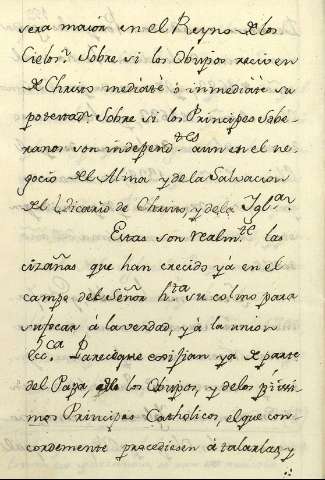 sera maior en el Reyno de los
Cielos? Sobre si los Obispos reciven
de Christo mediatè ò inmediatè su
potestad? Sobre si los Principes Sobe-
ranos son independ.tes aun en el ne-
gocio del Alma y de la Salvacion
del Vicario de Christo, y de la Igl.ª?
Estas son realm.te las
cizañas que han crecido yà en el
campo del Señor h.ta su colmo para
sufocar à la verdad, y à la union
&c.ca Parece que exijian ya de parte
del Papa, de los Obispos, y de los piissi-
mos Principes Catholicos, el que con-
cordemente procediesen à talarlas, y